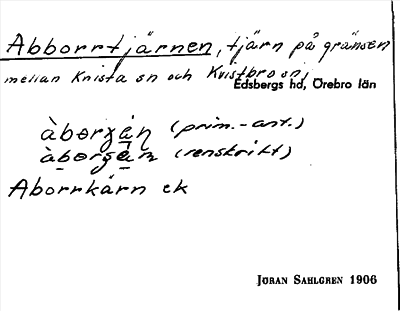 Abborrtjärnen, tjärn på gränsen
mellan Knista sn och Kvistbro sn,
Edsbergs hd, Örebro län
àborgán (prim.-ant.)
àborgán (renskrift)
Aborrkärn ek
JÖRAN SAHLGREN 1906